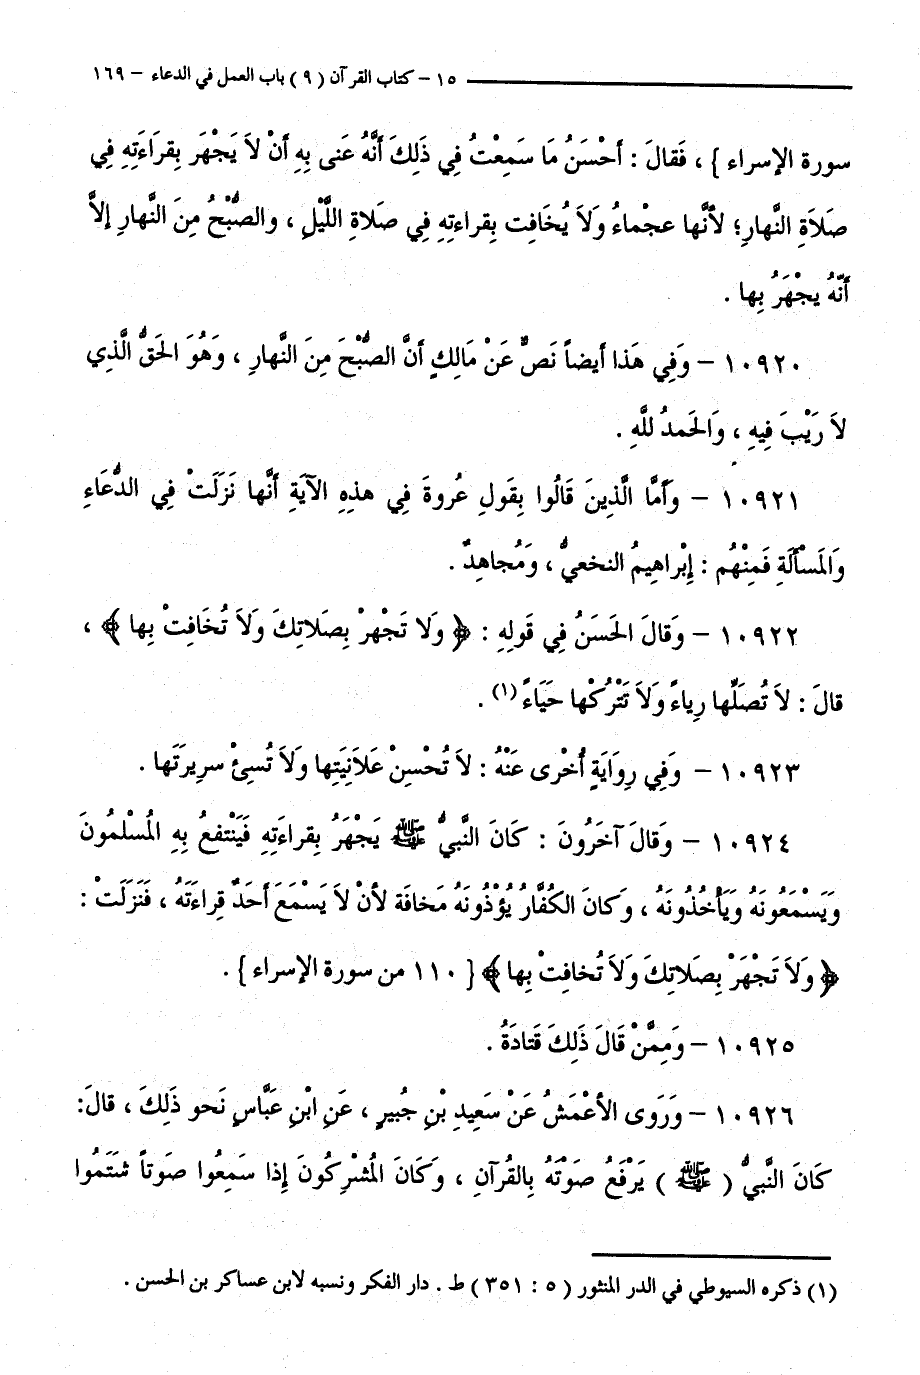 ١٥ – كتاب القرآن ( ٩ ) باب العمل في الدعاء – ١٦٩
سورة الإسراء } ، فَقالَ : أَحْسَنُ مَا سَمِعْتُ فِي ذَلِكَ أَنَّهُ عَنى بِهِ أَنْ لاَ يَجْهَرَ بِقرَاءَتِهِ فِي
صَلاَةِ النَّهارِ؛ لأنَّها عجْماءُ وَلاَ يُخَافِت بِقراءتِهِ فِي صَلاةِ اللَّيْلِ ، والصُّبْحُ مِنَ النَّهارِ إلاَّ
أَنَّهُ يجْهَرُ بِها .
١٠٩٢٠ – وَفِي هَذا أيضاً نَصٌّ عَنْ مَالِكٍ أنَّ الصُّبْحَ مِنَ النَّهارِ ، وَهُوَ الحَقُّ الَّذِي
لاَ رَيْبَ فِيهِ ، وَالحَمدُ للَّهِ .
١٠٩٢١ – وَأمَّا الَّذِينَ قَالُوا بِقَولِ عُروةَ فِي هذِهِ الآيَةِ أنَّها نَزَلَتْ فِي الدُّعَاءِ
وَالمَسْأَلَةِ فَمِنْهُم : إِبْراهِيمُ النخعيُّ ، وَمُجاهِدٌ .
١٠٩٢٢ – وَقالَ الحَسَنُ فِي قَولِهِ : ﴿ وَلا تَجْهرْ بِصَلاتِكَ وَلاَ تُخَافِتْ بِها ﴾ ،
قالَ : لاَ تُصَلِّها رِياءً وَلاَ تَتْرُكْها حَيَاءً (١) .
١٠٩٢٣ – وَفِي رِوَايَةٍ أُخْرى عَنْهُ : لاَ تُحْسِنْ عَلاَنِيَتِها وَلاَ تُسِئْ سرِيرتَها .
١٠٩٢٤ – وَقالَ آخَرُونَ : كَانَ النَّبيُّ ﷺ يَجْهَرُ بِقراءَتِهِ فَيَنْتفعُ بِهِ المُسْلمُونَ
وَيَسْمَعُونَهُ وَيَأخُذُونَهُ ، وكانَ الكُفَّارُ يُؤْذُونَهُ مَخافَة لأنْ لاَ يَسْمَعَ أَحَدٌ قِراءَتَهُ ، فَنَزَلَتْ :
﴿ وَلاَ تَجْهَرْ بِصَلاتِكَ وَلاَ تُخافِتْ بِها ﴾ { ١١٠ من سورة الإسراء } .
١٠٩٢٥ – وَمِمَّنْ قَالَ ذَلِكَ قَتَادَةُ .
١٠٩٢٦ – وَرَوى الأعْمَشُ عَنْ سَعِيدِ بْنِ جُبيرٍ ، عَنِ ابْنِ عَبَّاسٍ نَحو ذَلِكَ ، قالَ:
كَانَ النَّبيُّ ( ﷺ ) يَرْفَعُ صَوْتَهُ بِالقُرآنِ ، وَكَانَ المُشْرِكُونَ إِذا سَمِعُوا صَوتاً شتَمُوا
(١) ذكره السيوطي في الدر المنثور ( ٥ : ٣٥١ ) ط . دار الفكر ونسبه لابن عساكر بن الحسن .